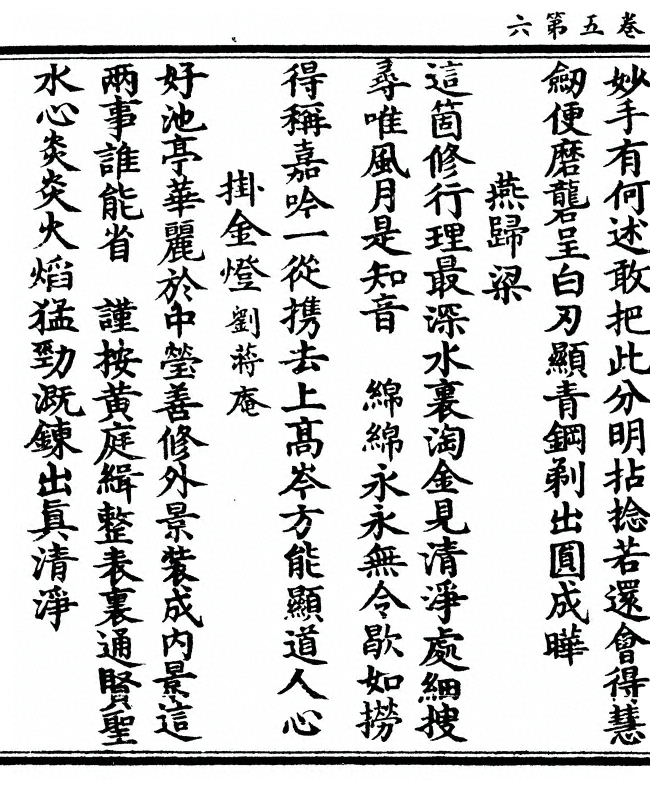 卷五第六
妙手有何述敢把此分明拈捻若還會得慧
劒便磨礲呈白刃顯青鋼剃出圓成曄
燕歸梁
這箇修行理最深水裏淘金見清淨處細搜
尋唯風月是知音　綿綿永永無令歇如撈
得稱嘉吟一從携去上高岑方能顯道人心
掛金燈劉蔣庵
好池亭華麗於中瑩善修外景裝成內景這
兩事誰能省　謹按黃庭緝整表裏通賢聖
水心炎炎火熖猛勁溉鍊出眞清淨